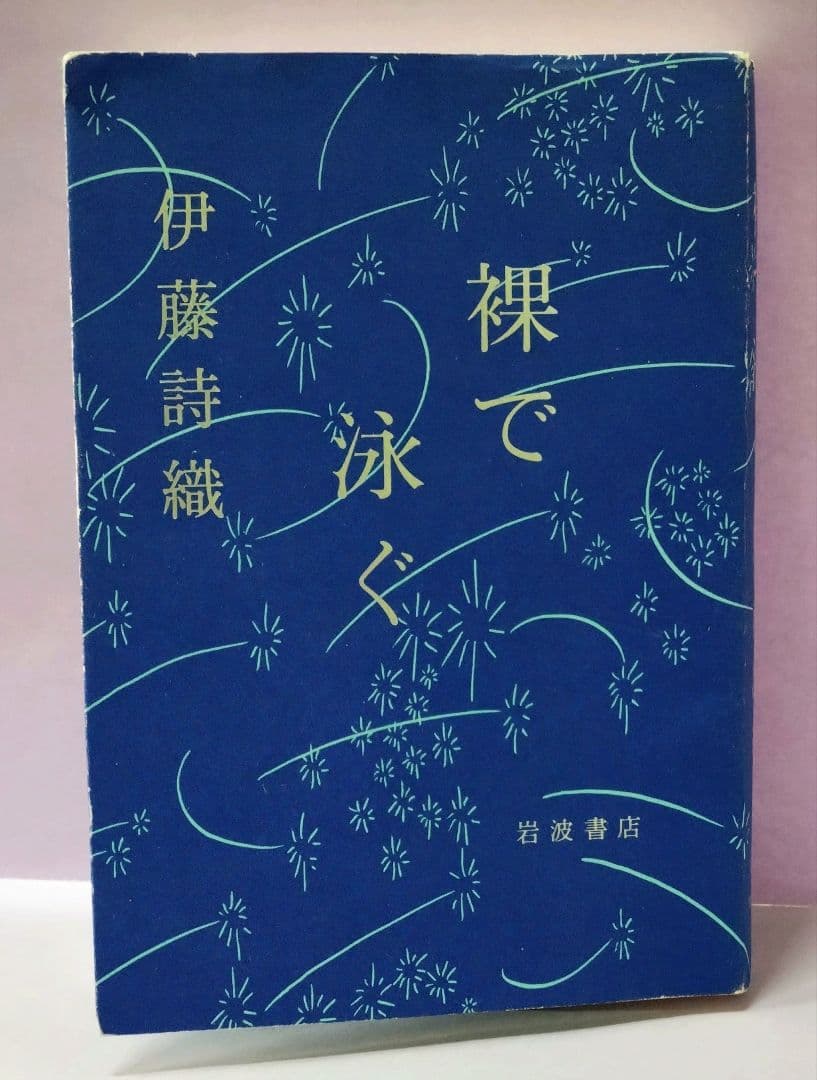 裸で
泳ぐ
伊藤詩織
岩波書店